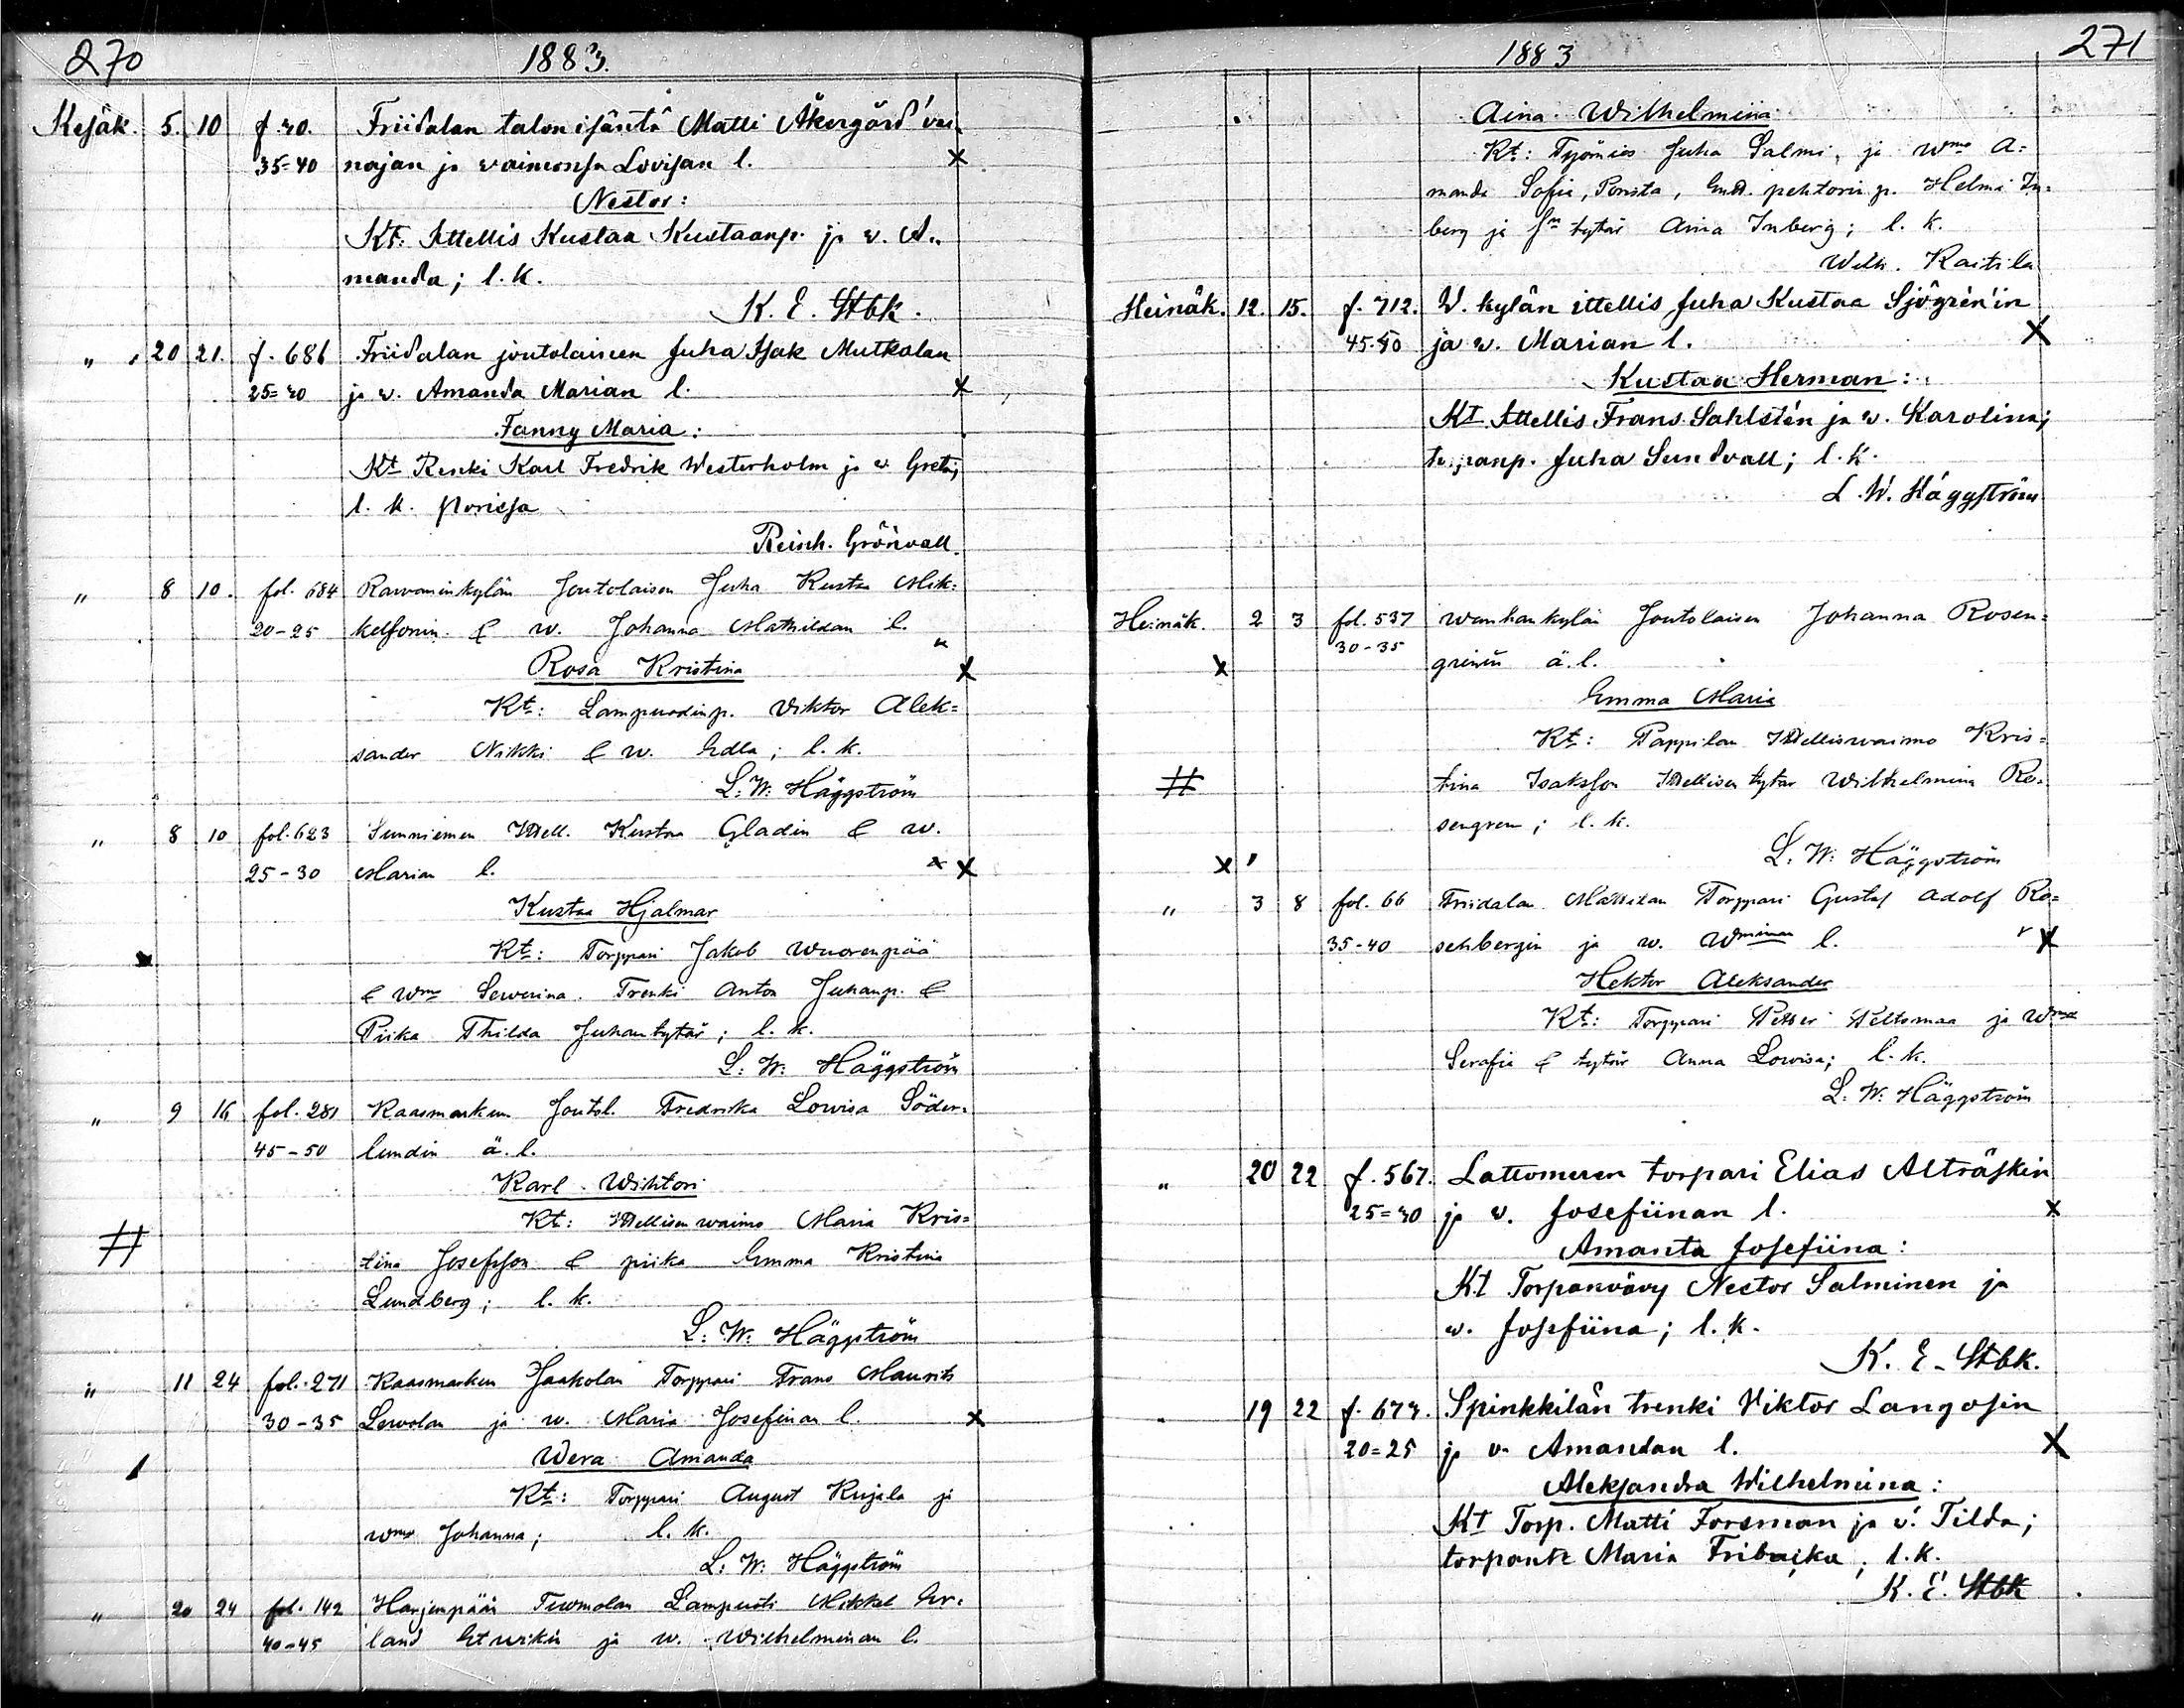 270
1883.
Kesäk. 5. 10 f. 40. Friidalan talon isäntä Matti Åkergård'vai-
35=40 najan ja vaimonsa Lovisan l. X
Nestor:
Kt. Ittellis Kustaa Kustaanp. ja v. A-
manda; l. k.
K. E. Stbk.
" 20 21. f. 686 Friidalan joutolaisen Juha Isak Mutkalan
25=30 ja v. Amanda Marian l. X
Fanny Maria:
Kt Renki Karl Fredrik Westerholm ja v Greta;
l. k. Porissa
Reinh. Grönvall.
" 8 10. fol. 684 Ravvaninkylän Joutolaisen Juha Kustaa Mik=
20-25 kelsonin & w. Johanna Mathildan l.
Rosa Kristina X
Kt: Lampuodinp. Viktor Alek=
sander Nikki & w. Edla; l. k.
L. W. Häggström
" 8 10 fol. 623 Sunniemen Ittell. Kustaa Gladin & w.
25-30 Marian l. X
Kustaa Hjalmar
Kt: Torppari Jakob Wuorenpää
& Wmo Sewerina. Trenki Anton Juhanp. &
Piika Thilda Juhantytär; l. k.
L. W. Häggström
" 9 16 fol. 281 Kaasmarkun Joutol. Fredrika Lowisa Söder-
45-50 lundin ä. l.
Karl Wihtori
Kt: Ittellisen waimo Maria Kris=
# tina Josefsson & piika Emma Kristina
Lundberg; l. k.
L. W. Häggström
" 11 24 fol. 271 Kaasmarkun Jaakolan Torppari Frans Maurits
30-35 Lewolan ja w. Maria Josefinan l. X
Wera Amanda
Kt: Torppari August Kujala ja
wmo Johanna; l. k.
L. W. Häggström
" 20 24 fol. 142 Harjunpään Tuomolan Lampuoti Mikkel Er-
40-45 land ja w. Wilhelminan l.
1883
271
Aina Wilhelmina
Kt: Työmies Juha Salmi, ja Wmo A=
manda Sofia, Porista, pehtorin p. Helmi In=
berg ja sn tytär Aina Inberg; l. k.
Wilh. Raitila
Heinäk. 12. 15. f. 712. W. kylän ittellis Juha Kustaa Sjögrén'in
45-50 ja w. Marian l. X
Kustaa Herman:
Kt Ittellis Frans Sahlstén ja w. Karolina;
Juha Sundvall; l. k.
L. W. Häggström
Heinäk. 2 3 fol. 537 Wanhankylän Joutolaisen Johanna Rosen=
30-35
X grenin ä. l.
Emma Maria
Kt: Pappilan Ittelliswaimo Kris=
# tina Isaksson Ittellisen tytär Wilhelmina Ro-
sengren; l. k.
X L. W. Häggström
" 3 8 fol. 66 Friidalan Mattilan Torppari Gustaf Adolf Ro=
35-40 senbergin ja w. Wminan l. X
Hektor Aleksander
Kt: Torppari Petter Peltomaa ja Wmo
Serafia & tytär Anna Lowisa; l. k.
L. W. Häggström
" 20 22 f. 567. Lattomeren torpari Elias Alträskin
25=30 ja v. Josefiinan l. X
Amanta Josefiina:
Kt Torpanvävy Nestor Salminen ja
w. Josefiina; l. k.
K. E. Stbk.
" 19 22 f. 673. Spinkkilän trenki Viktor Langosin
20=25 ja v. Amandan l. X
Aleksandra Wilhelmiina:
Kt Torp. Matti Forsman ja v. Tilda;
Maria l. k.
K. E. Stbk